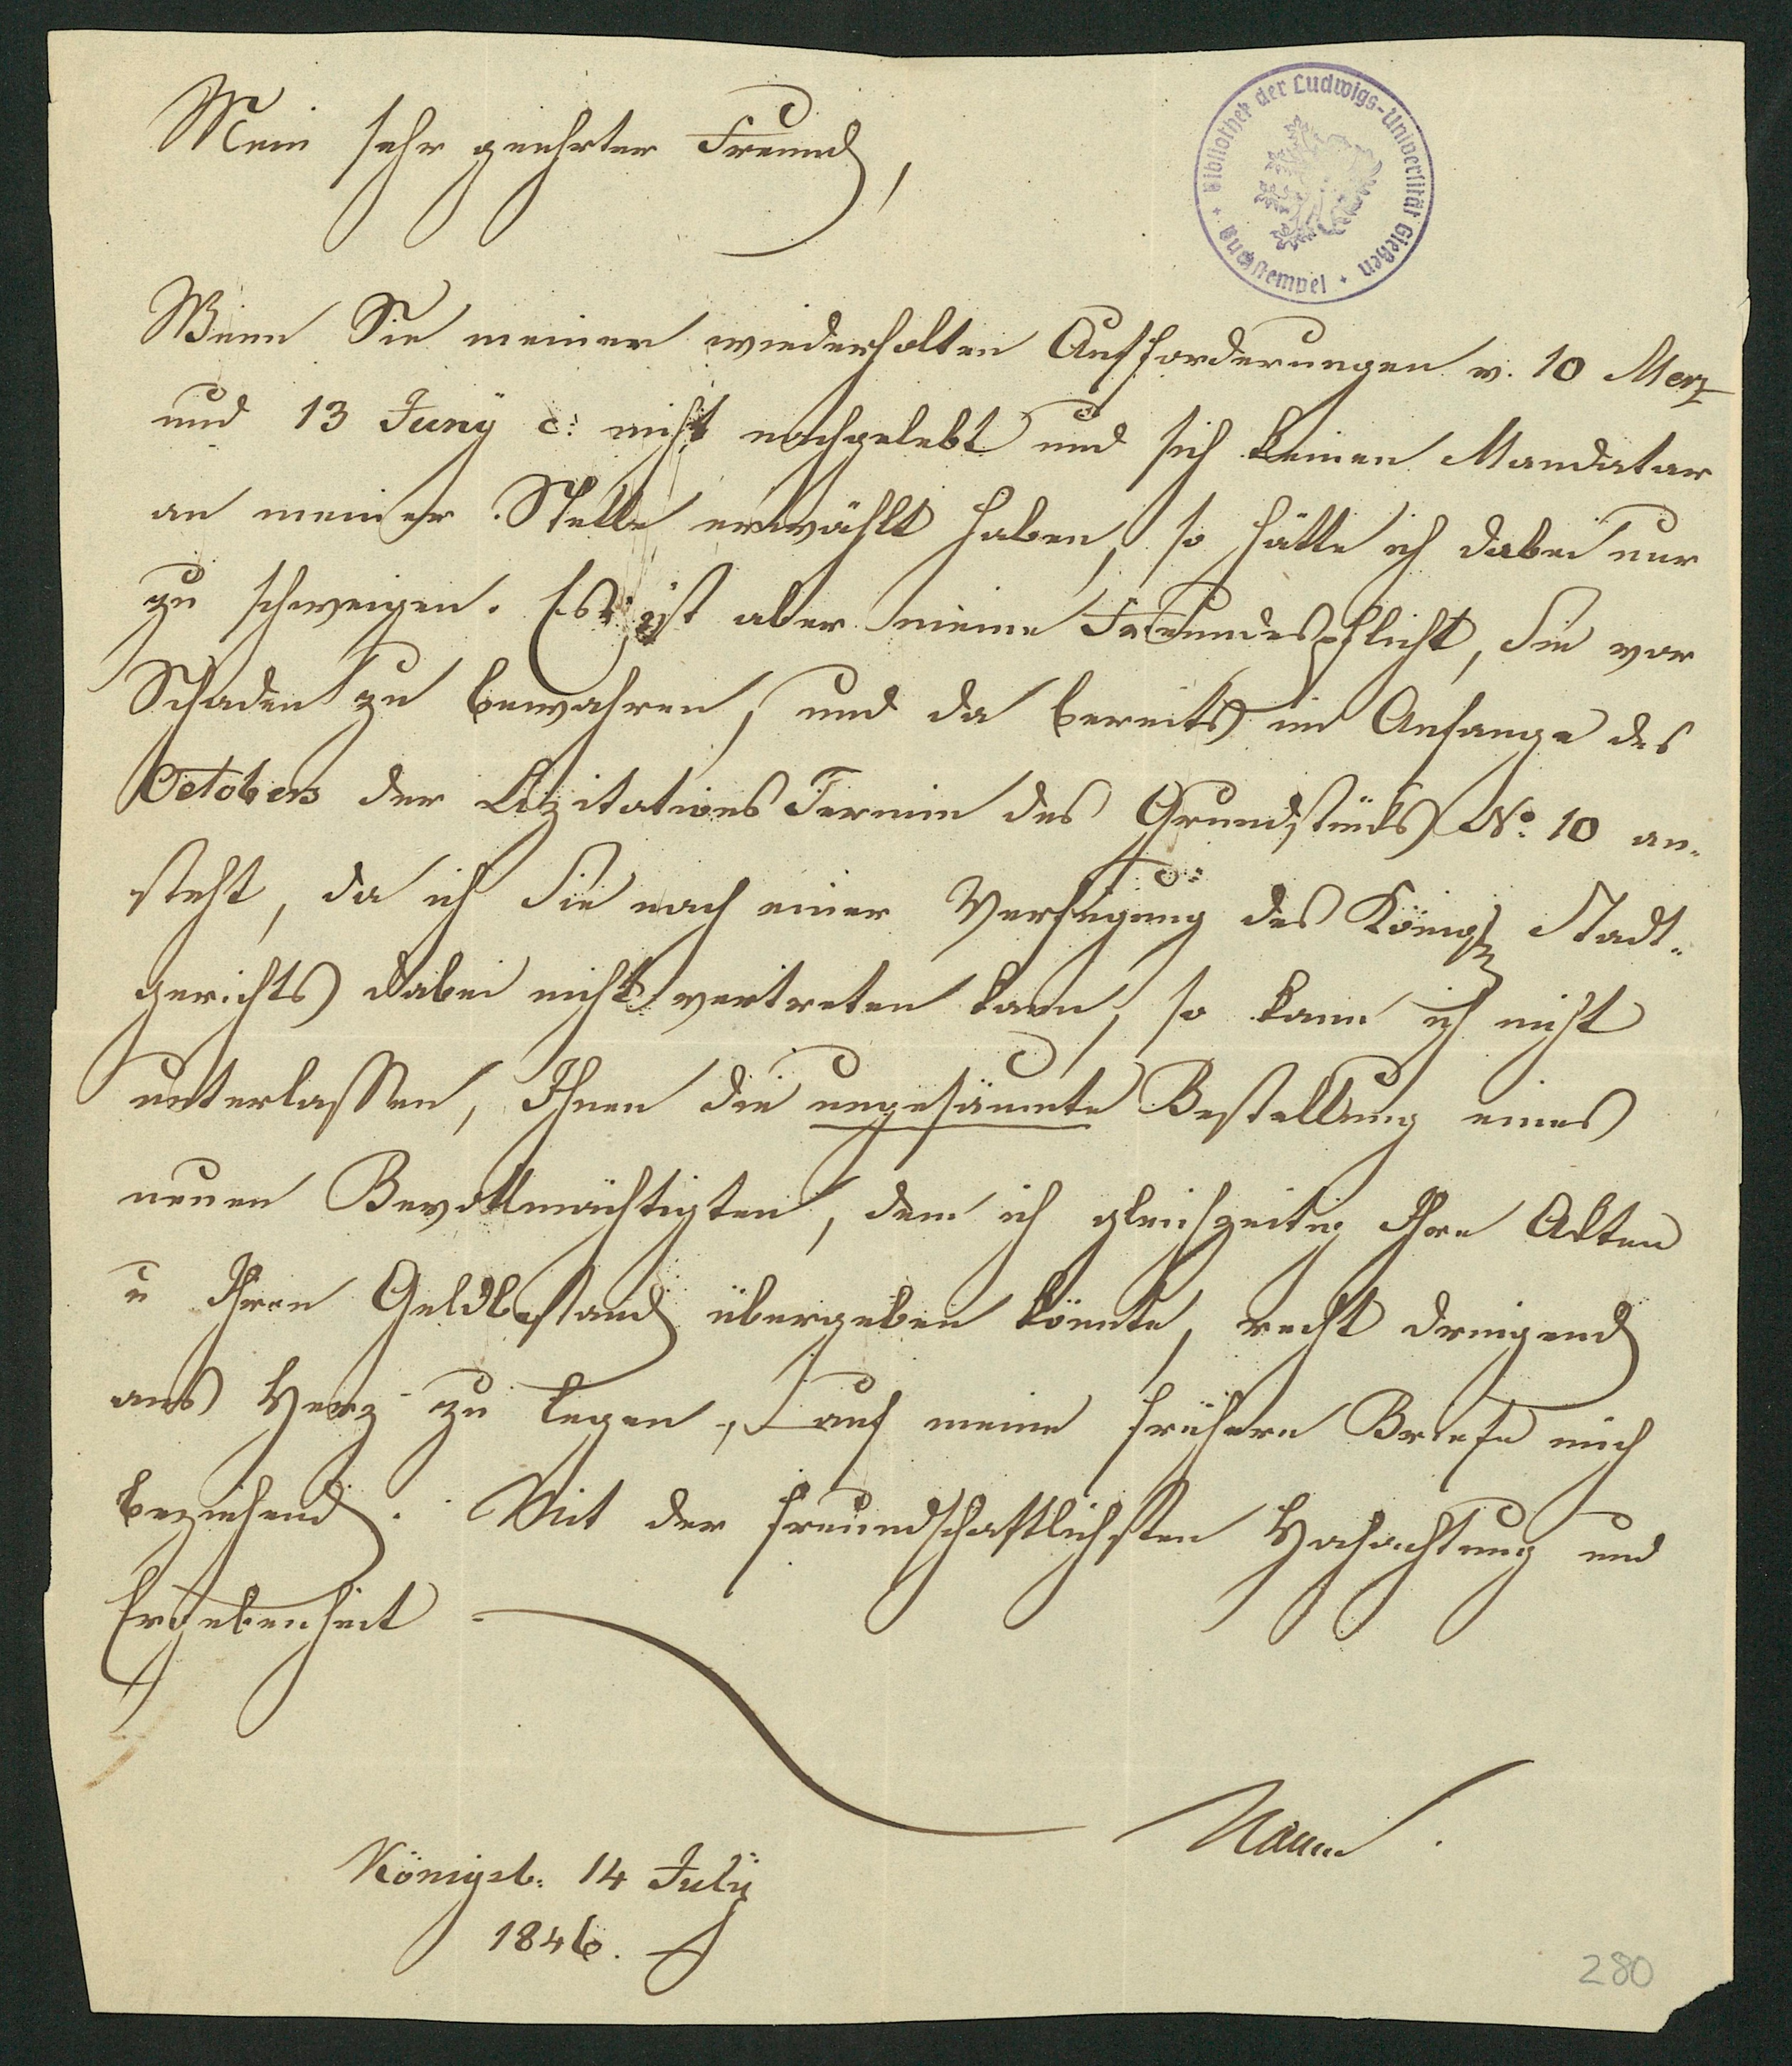 Mein sehr geehrter Freund,
Bibliothek der Ludwigs-Universität Gießen
Buchstempel
Wenn Sie meinen wiederholten Aufforderungen v. 10 Merz
und 13 Juny c: nicht nachgelebt und sich keinen Mandatar
an meiner Stelle erwählt haben, so hätte ich dabei nur
zu schweigen. Es ist aber meine Freundespflicht, Sie vor
Schaden zu bewahren, und da bereits im Anfange des
Octobers der Lizitations Termin des Grundstücks No. 10 an-
steht, da ich Sie nach einer Verfügung des Königl Stadt-
gerichts dabei nicht vertreten kann, so kann ich nicht
unterlassen, Ihnen die ungesäumte Bestellung eines
neuen Bevollmächtigten, dem ich gleichzeitig Ihre Akten
u Ihren Geldbestand übergeben könnte, recht dringend
ans Herz zu legen, auf meine frühern Briefe mich
beziehend. Mit der freundschaftlichsten Hochachtung und
Ergebenheit
Königsb: 14 July
1846.
280